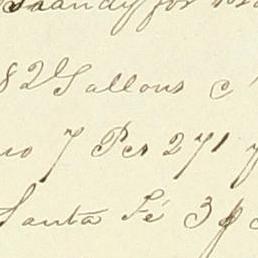 Brandy for
82 Gallons c
no 7 Per 271
Santa Fé 3